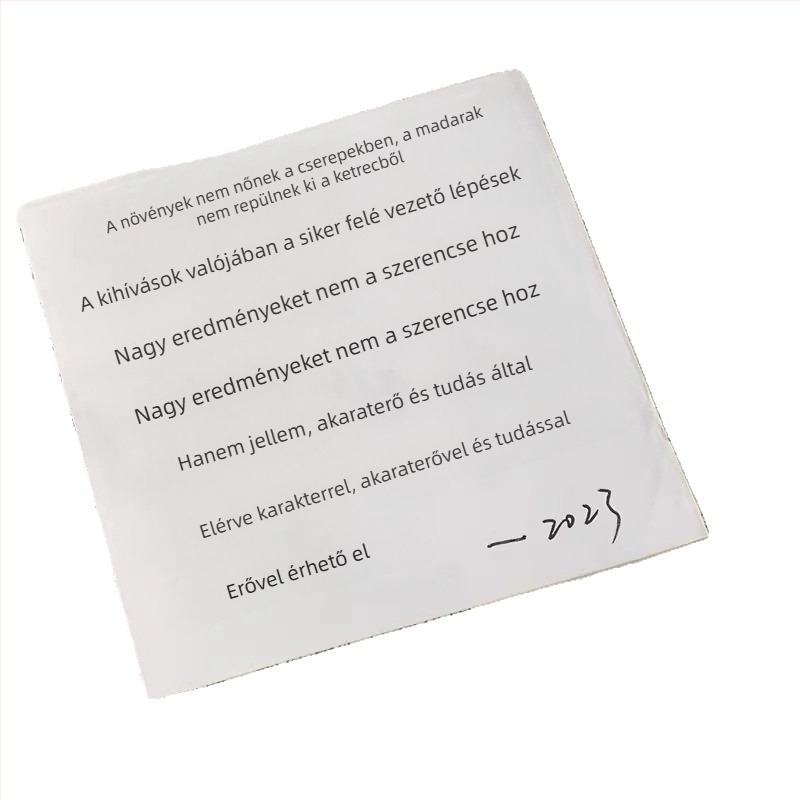 A növények nem nőnek a cserepekben, a madarak
nem repülnek ki a ketrecből
A kihívások valójában a siker felé vezető lépések
Nagy eredményeket nem a szerencse hoz
Nagy eredményeket nem a szerencse hoz
Hanem jellem, akaraterő és tudás által
Elérve karakterrel, akaraterővel és tudással
Erővel érhető el
— 2023